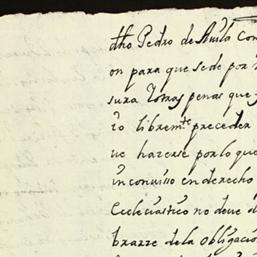 dho Pedro de Auila Con
on para que se de por n
sura Y otras penas que
ro librem.te preceder
ue hazerse por lo que
inconuiso en derecho
Ecclesiastico no deue d
brarze de la obligacio